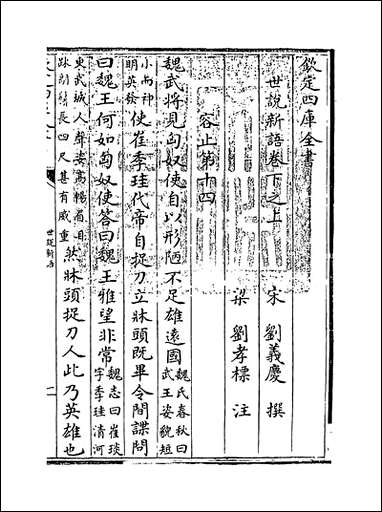 欽定四庫全書
世說新語卷下之上
宋 劉義慶 撰
梁 劉孝標 注
容止第十四
魏武將見匈奴使自以形陋不足雄遠國魏氏春秋曰武王姿貌短
小而神明英發使崔季珪代帝自捉刀立牀頭既畢令間諜問
曰魏王何如匈奴使答曰魏王雅望非常魏志曰崔琰字季珪清河
東武城人聲姿高暢眉目疎朗鬚長四尺甚有威重然牀頭捉刀人此乃英雄也
世說新語
一